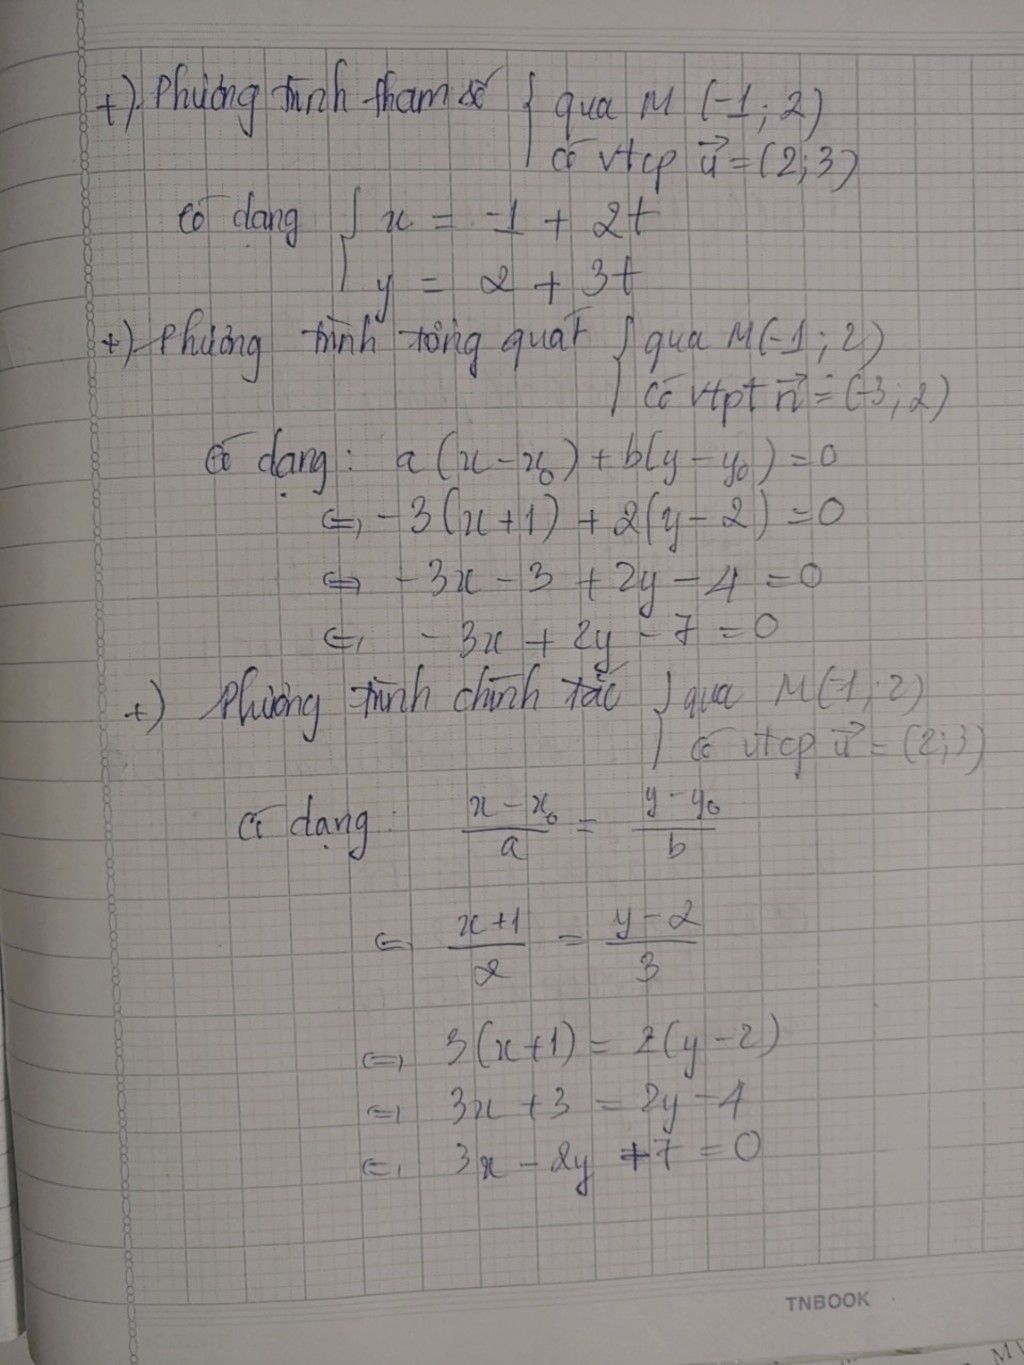 +) Phương trình tham số { qua M (-1; 2)
có vtcp u⃗ = (2; 3)
có dạng { x = -1 + 2t
y = 2 + 3t
+) Phương trình tổng quát { qua M(-1; 2)
có vtpt n⃗ = (-3; 2)
có dạng: a(x - x₀) + b(y - y₀) = 0
⇔ -3(x+1) + 2(y - 2) = 0
⇔ -3x - 3 + 2y - 4 = 0
⇔ -3x + 2y - 7 = 0
+) Phương trình chính tắc { qua M(-1; 2)
có vtcp u⃗ = (2; 3)
có dạng: (x - x₀)/a = (y - y₀)/b
⇔ (x+1)/2 = (y - 2)/3
⇔ 3(x+1) = 2(y - 2)
⇔ 3x + 3 = 2y - 4
⇔ 3x - 2y + 7 = 0
TNBOOK